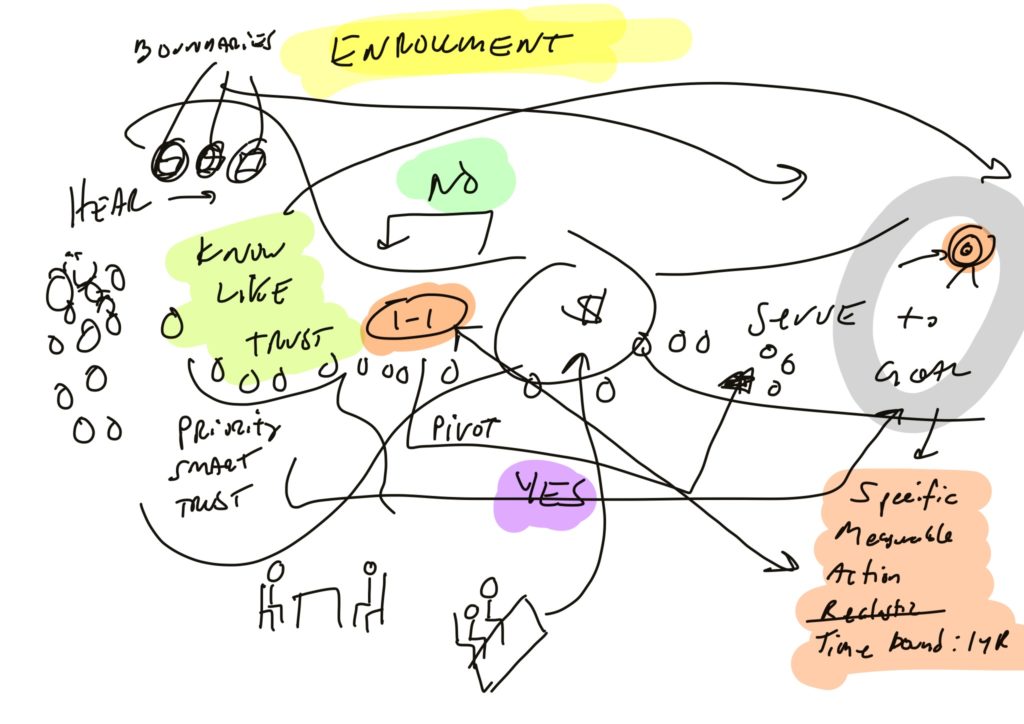 BOUNDARIES
ENROLLMENT
NO
HEAR
KNOW
LIKE
TRUST
1-1
$
SERVE
to
GOAL
PRIORITY
SMART
TRUST
PIVOT
YES
Specific
Measurable
Action
Realistic
Time bound: 1YR